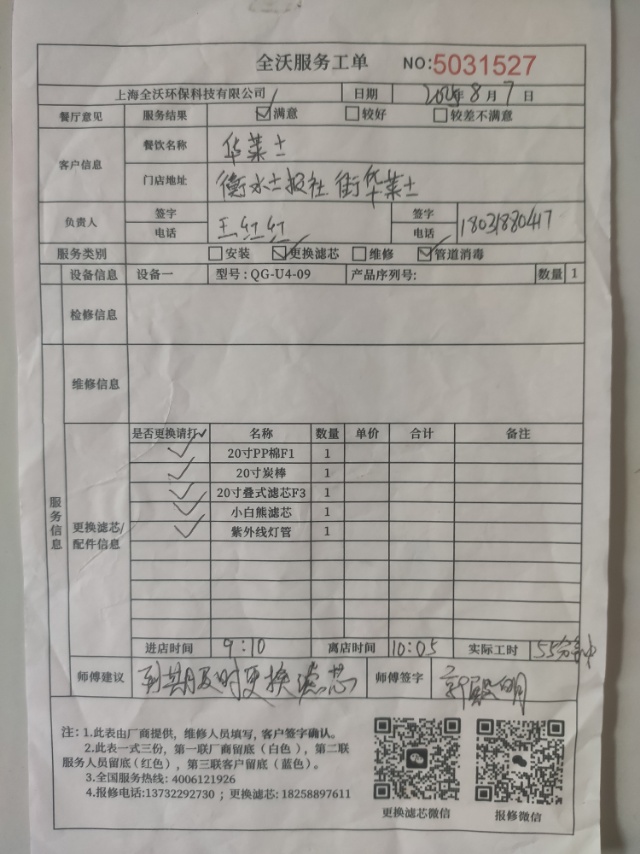 全沃服务工单 NO:5031527
上海全沃环保科技有限公司 日期 2024年8月7日
餐厅意见 服务结果 ☑满意 □较好 □较差不满意
客户信息 餐饮名称 华莱士
门店地址 衡水士报社街华莱士
负责人 签字 电话 王红红 签字 电话 18031880417
服务类别 □安装 ☑更换滤芯 □维修 ☑管道消毒
设备信息 设备一 型号:QG-U4-09 产品序列号: 数量 1
检修信息
维修信息
服务信息
更换滤芯/配件信息
是否更换请打✓ 名称 数量 单价 合计 备注
✓ 20寸PP棉F1 1
✓ 20寸炭棒 1
✓ 20寸叠式滤芯F3 1
✓ 小白熊滤芯 1
✓ 紫外线灯管 1
进店时间 9:10 离店时间 10:05 实际工时 55分钟
师傅建议 到期及时更换滤芯 师傅签字
注: 1.此表由厂商提供，维修人员填写,客户签字确认。
2.此表一式三份，第一联厂商留底（白色），第二联
服务人员留底(红色），第三联客户留底（蓝色）。
3.全国服务热线: 4006121926
4.报修电话:13732292730 ; 更换滤芯: 18258897611
更换滤芯微信 报修微信